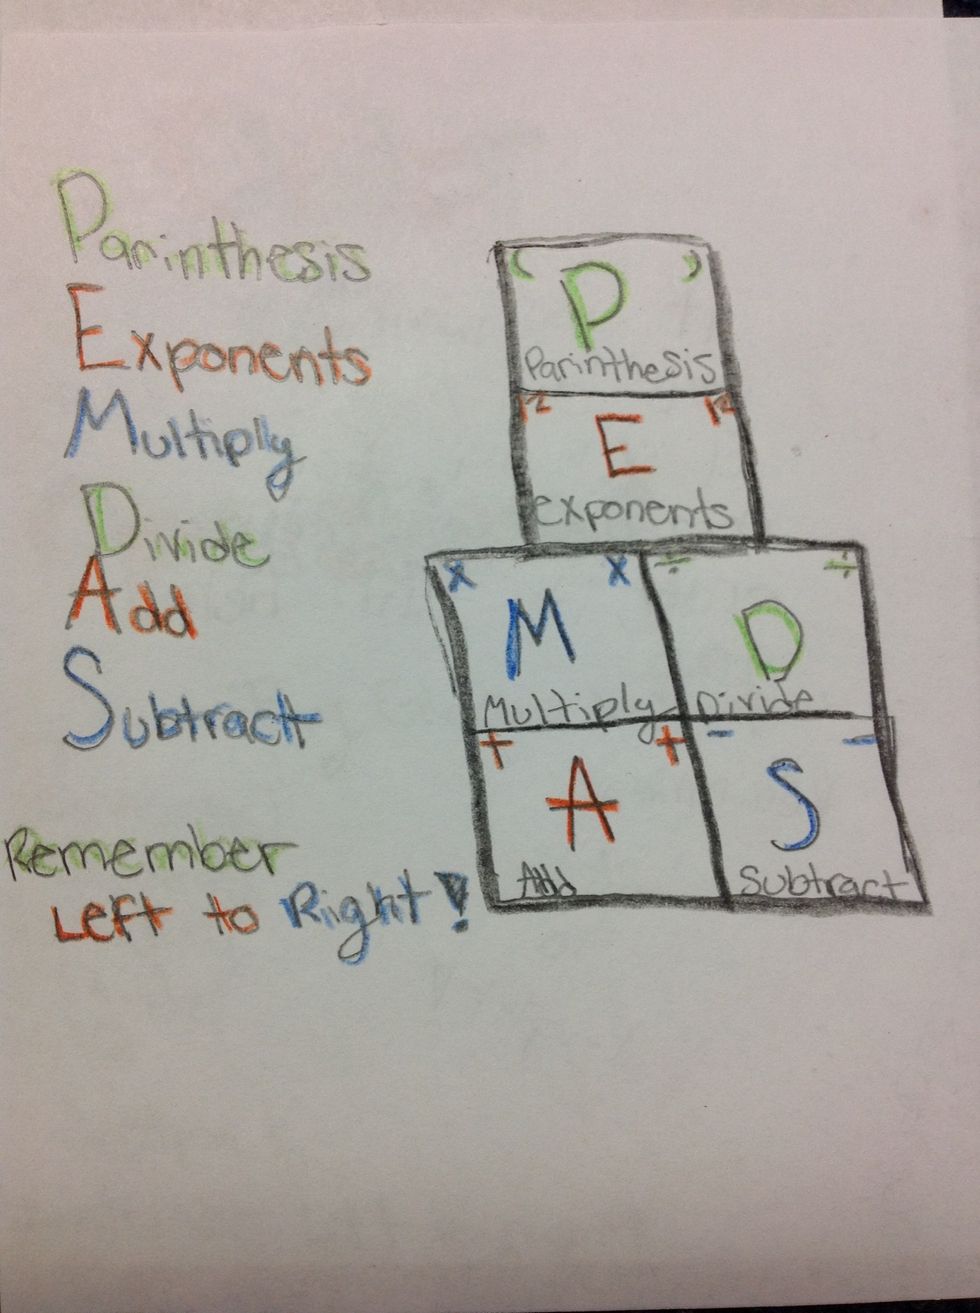 Parinthesis
Exponents
Multiply
Divide
Add
Subtract
Remember
Left to Right!
( P )
Parinthesis
E
exponents
x M x
Multiply
÷ D ÷
Divide
+ A +
Add
- S -
Subtract